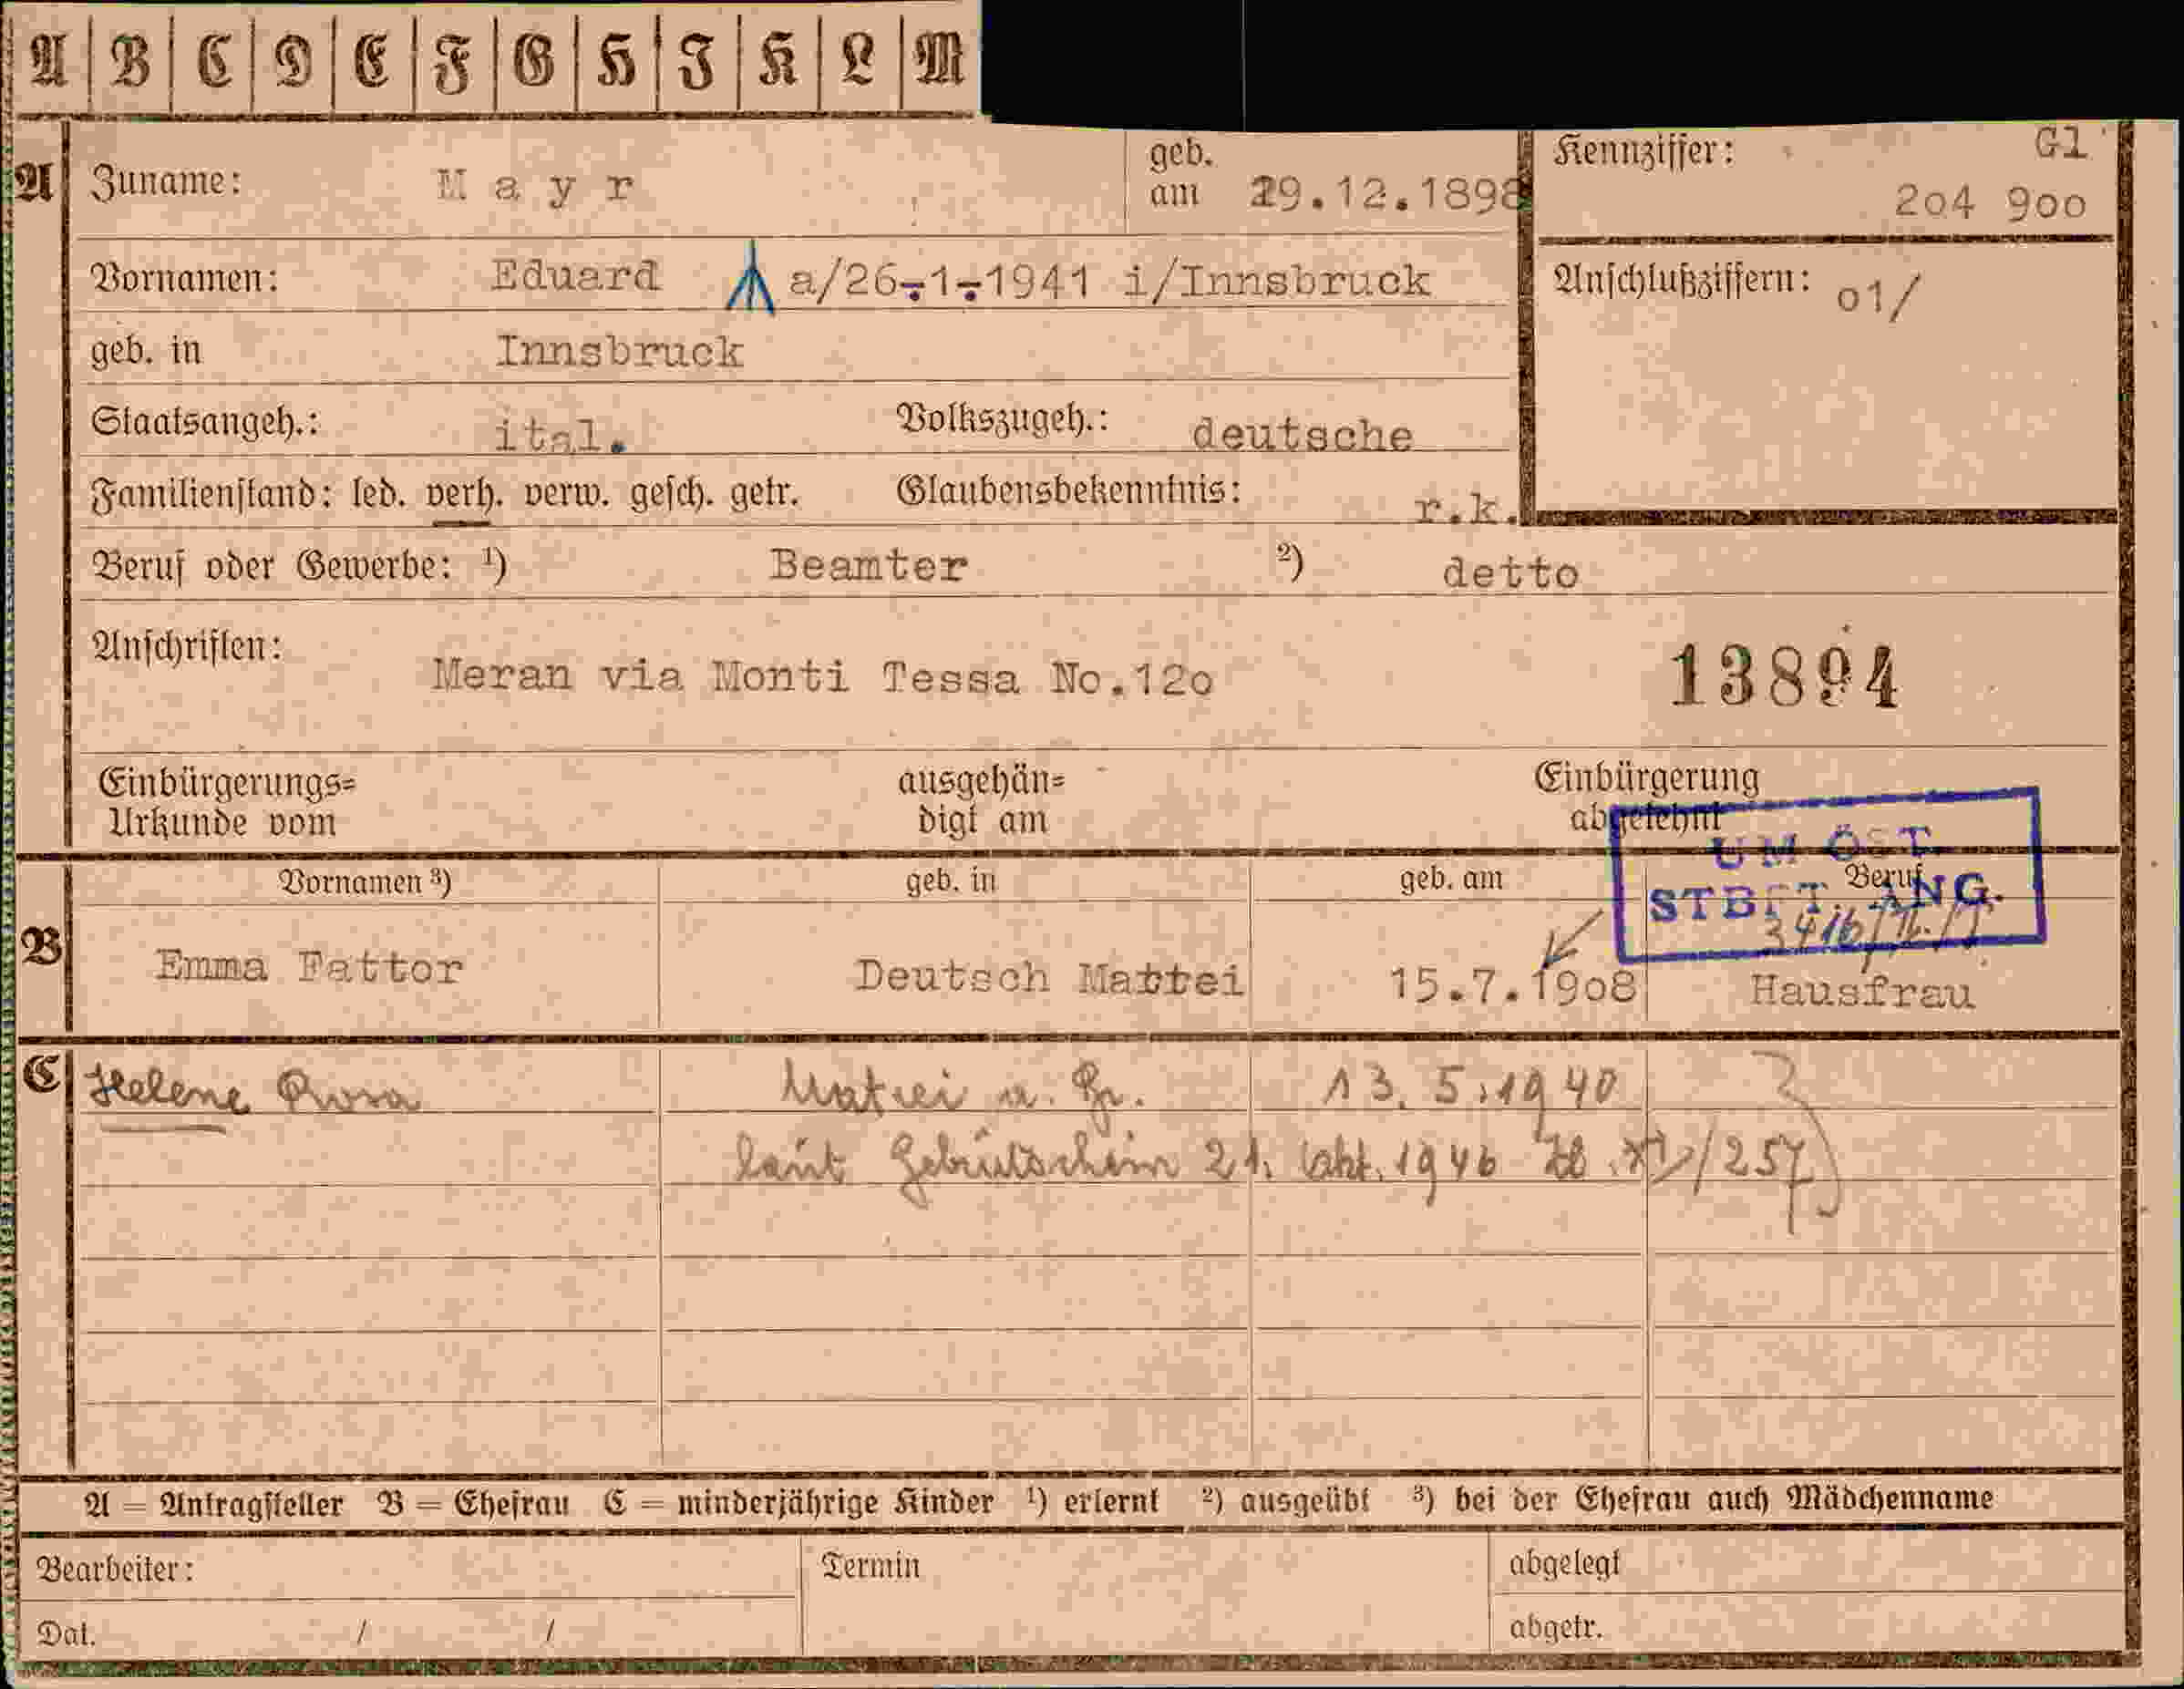 A B C D E F G H I K L M
A Zuname: Mayr geb. am 29.12.1898 Kennziffer: Gl 204 900
Vornamen: Eduard a/26.1.1941 i/Innsbruck Anschlußziffern: 01/
geb. in Innsbruck
Staatsangeh.: ital. Volkszugeh.: deutsche
Familienstand: led. verh. verw. gesch. getr. Glaubensbekenntnis: r.k.
Beruf oder Gewerbe: ¹) Beamter ²) detto
Anschriften: Meran via Monti Tessa No.12o 13894
Einbürgerungs= Urkunde vom ausgehän= digt am Einbürgerung abgelehnt
UM ÖST.
STBFT. ANG.
B Vornamen ³) geb. in geb. am Beruf
Emma Fattor Deutsch Mattei 15.7.1908 Hausfrau
C Helene Rosa Matrei a. Br. 13.5.1940
laut Geburtschein 21. Okt. 1946
A = Antragsteller B = Ehefrau C = minderjährige Kinder ¹) erlernt ²) ausgeübt ³) bei der Ehefrau auch Mädchenname
Bearbeiter: Termin abgelegt
Dat. / / abgetr.